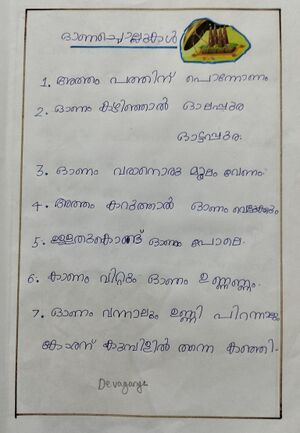 ഓണച്ചൊല്ലുകൾ
1. അത്തം പത്തിന് പൊന്നോണം
2. ഓണം കഴിഞ്ഞാൽ ഓലപ്പുര
ഓട്ടപ്പുര.
3. ഓണം വരാനൊരു മൂലം വേണം.
4. അത്തം കറുത്താൽ ഓണം വെളുക്കും
5. ഉള്ളതുകൊണ്ട് ഓണം പോലെ.
6. കാണം വിറ്റും ഓണം ഉണ്ണണം.
7. ഓണം വന്നാലും ഉണ്ണി പിറന്നാലും
കോരന് കുമ്പിളിൽ തന്നെ കഞ്ഞി.
Devagange